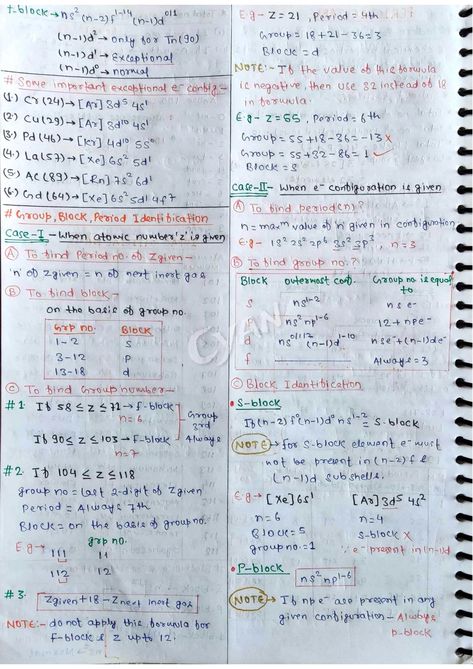 f-block → ns² (n-2)f¹⁻¹⁴ (n-1)d⁰¹¹
(n-1)d² → only for Th(90)
(n-1)d¹ → Exceptional
(n-1)d⁰ → normal
# Some important exceptional e⁻ config:-
(1) Cr(24) → [Ar] 3d⁵ 4s¹
(2) Cu(29) → [Ar] 3d¹⁰ 4s¹
(3) Pd(46) → [Kr] 4d¹⁰ 5s⁰
(4) La(57) → [Xe] 6s² 5d¹
(5) Ac(89) → [Rn] 7s² 6d¹
(6) Gd(64) → [Xe] 6s² 5d¹ 4f⁷
# Group, Block, Period Identification
Case-I - When atomic number 'z' is given
(A) To find Period no. of Zgiven-
'n' of Zgiven = n of next inert gas
(B) To find block-
on the basis of group no.
Grp no. Block
1-2 s
3-12 p
13-18 d
(C) To find Group number-
#1: If 58 ≤ z ≤ 71 → f-block
n=6
If 90 ≤ z ≤ 103 → f-block
n=7
Group
3rd
Always
#2: If 104 ≤ z ≤ 118
group no = Last 2-digit of Zgiven
Period = Always 7th
Block = on the basis of group no.
Eg → grp no.
111 11
112 12
#3: Zgiven + 18 - Znext inert gas
NOTE:- do not apply this formula for
f-block & z upto 12.
Eg - Z=21, Period = 4th
Group = 18+21-36 = 3
Block = d
NOTE:- If the value of this formula
is negative, then use 32 instead of 18
in formula.
Eg - Z=55, Period = 6th
Group = 55+18-86 = -13 ×
Group = 55+32-86 = 1 ✓
Block = s
Case-II - When e⁻ configuration is given
(A) To find period(n)?
n = maxᵐ value of 'n' given in configuration
Eg - 1s² 2s² 2p⁶ 3s² 3p², n=3
(B) To find group no.?
Block outermost conf. Group no is equal to
s ns¹⁻² ns e⁻
p ns² np¹⁻⁶ 12 + np e⁻
d ns⁰¹¹² (n-1)d¹⁻¹⁰ ns e⁻ + (n-1)d e⁻
f Always = 3
(C) Block Identification
• S-block
If (n-2)f⁰ (n-1)d⁰ ns¹⁻² = s-block
NOTE → for s-block element e⁻ must
not be present in (n-2)f &
(n-1)d subshells.
Eg → [Xe] 6s¹ [Ar] 3d⁵ 4s²
n=6 n=4
Block = s s-block ×
group no: = 1 ∵ e⁻ present in (n-1)d
• P-block
ns² np¹⁻⁶
NOTE → If np e⁻ are present in any
given configuration - Always
p-block